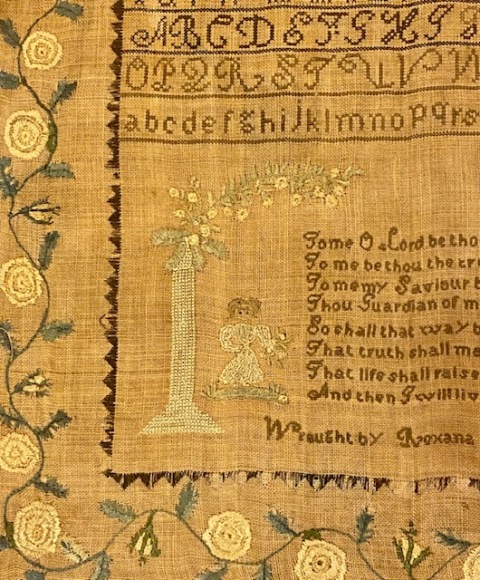 ABCDEFGHI
OPQRSTUVW
abcdefghijklmnopqrs
To me O Lord be tho
To me be thou the tr
To me my Saviour b
Thou Guardian of m
So shall that way b
That truth shall me
That life shall raise
And then I will liv
Wrought by Roxana